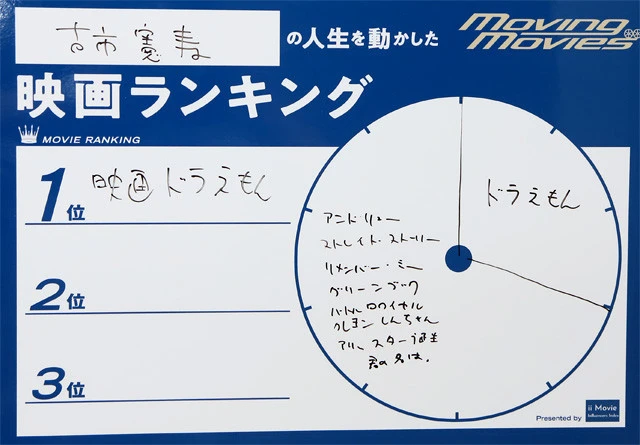 古市憲寿 の人生を動かした
Moving Movies
映画ランキング
MOVIE RANKING
1位 映画ドラえもん
2位
3位
ドラえもん
アンドリュー
ストレイト・ストーリー
リメンバー・ミー
グリーンブック
バトルロワイヤル
クレヨンしんちゃん
アリー スター誕生
君の名は。
Presented by ii Movie